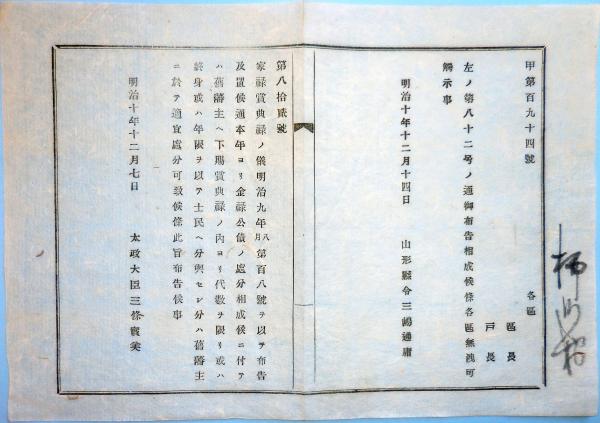 甲第百九十四號
各區
區長
戸長
左ノ第八十二号ノ通御布告相成候條各區無洩可
觸示事
明治十年十二月十四日
山形縣令三島通庸
第八拾貳號
家祿賞典祿ノ儀明治九年八月第百八號ヲ以テ布告
及置候通本年ヨリ金祿公債ノ處分相成候ニ付テ
ハ舊藩主ヘ下賜賞典祿ノ内ヨリ代數ヲ限リ或ハ
終身或ハ年限ヲ以テ士民ヘ分與セシ分ハ舊藩主
ニ於テ適宜處分可致候條此旨布告候事
明治十年十二月七日
太政大臣三條實美